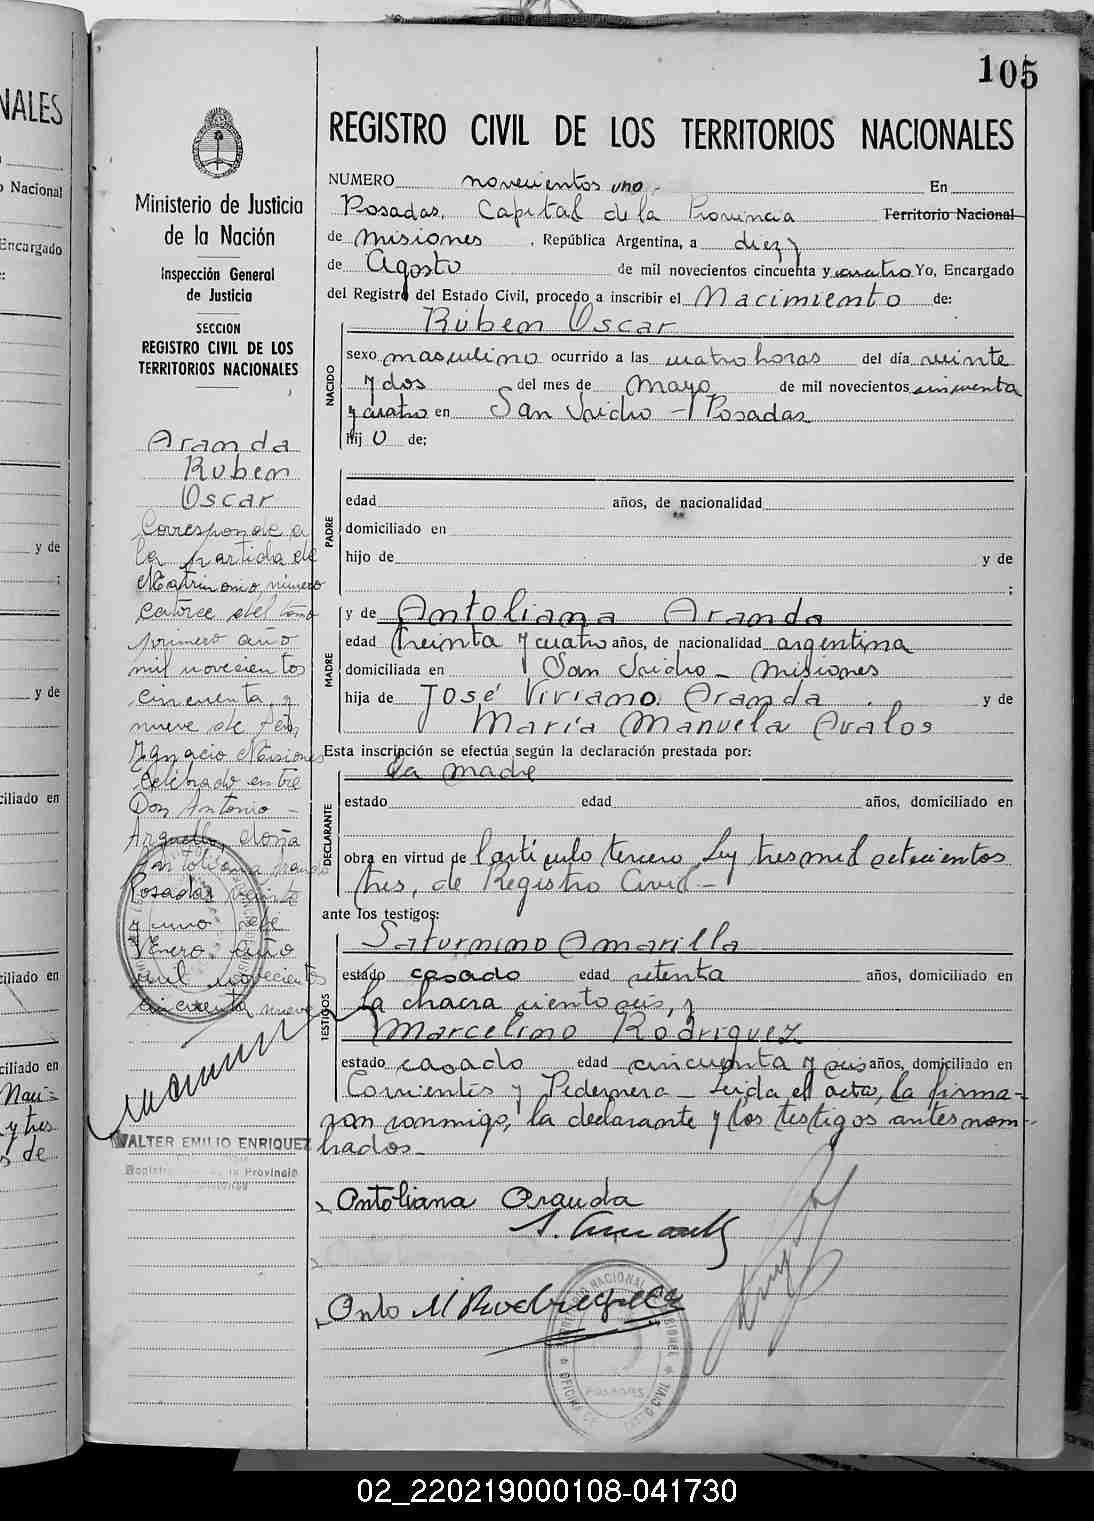 105
NALES
Nacional
Encargado
y de
;
y de
ciliado en
ciliado en
ciliado en
y tres
s de
Ministerio de Justicia
de la Nación
Inspección General
de Justicia
SECCION
REGISTRO CIVIL DE LOS
TERRITORIOS NACIONALES
Aranda
Ruben
Oscar
Corresponde a
la partida de
Matrimonio, número
catorce del tomo
primero año
mil novecientos
cincuenta y
nueve de San
Ignacio Misiones
celebrado entre
Don Antonio
Arguello, doña
Antoliana Aranda
Posadas veinte
y uno de
Enero año
mil novecientos
cincuenta nueve
WALTER EMILIO ENRIQUEZ
la Provincia
REGISTRO CIVIL DE LOS TERRITORIOS NACIONALES
NUMERO novecientos uno.- En
Posadas, Capital de la Provincia Territorio Nacional
de Misiones, República Argentina, a diez y
de Agosto de mil novecientos cincuenta y cuatro Yo, Encargado
del Registro del Estado Civil, procedo a inscribir el Nacimiento de:
NACIDO
Rúben Oscar
sexo masculino ocurrido a las cuatro horas del día veinte
y dos del mes de mayo de mil novecientos cincuenta
y cuatro en San Isidro - Posadas
hijo de;
PADRE
edad años, de nacionalidad
domiciliado en
hijo de y de
;
MADRE
y de Antoliana Aranda
edad treinta y cuatro años, de nacionalidad argentina
domiciliada en San Isidro - Misiones
hija de José Viviano Aranda y de
María Manuela Avalos
Esta inscripción se efectúa según la declaración prestada por:
DECLARANTE
la madre
estado edad años, domiciliado en
obra en virtud de l'artículo tercero, Ley tres mil setecientos
tres, de Registro Civil -
ante los testigos:
TESTIGOS
Saturnino Amarilla
estado casado edad setenta años, domiciliado en
La chacra ciento seis, y
Marcelino Rodriguez
estado casado edad cincuenta y seis años, domiciliado en
Corrientes y Pedernera - Leida el acta, la firma-
ron conmigo, la declarante y los testigos antes nom-
brados.-
Antoliana Aranda
02_220219000108-041730